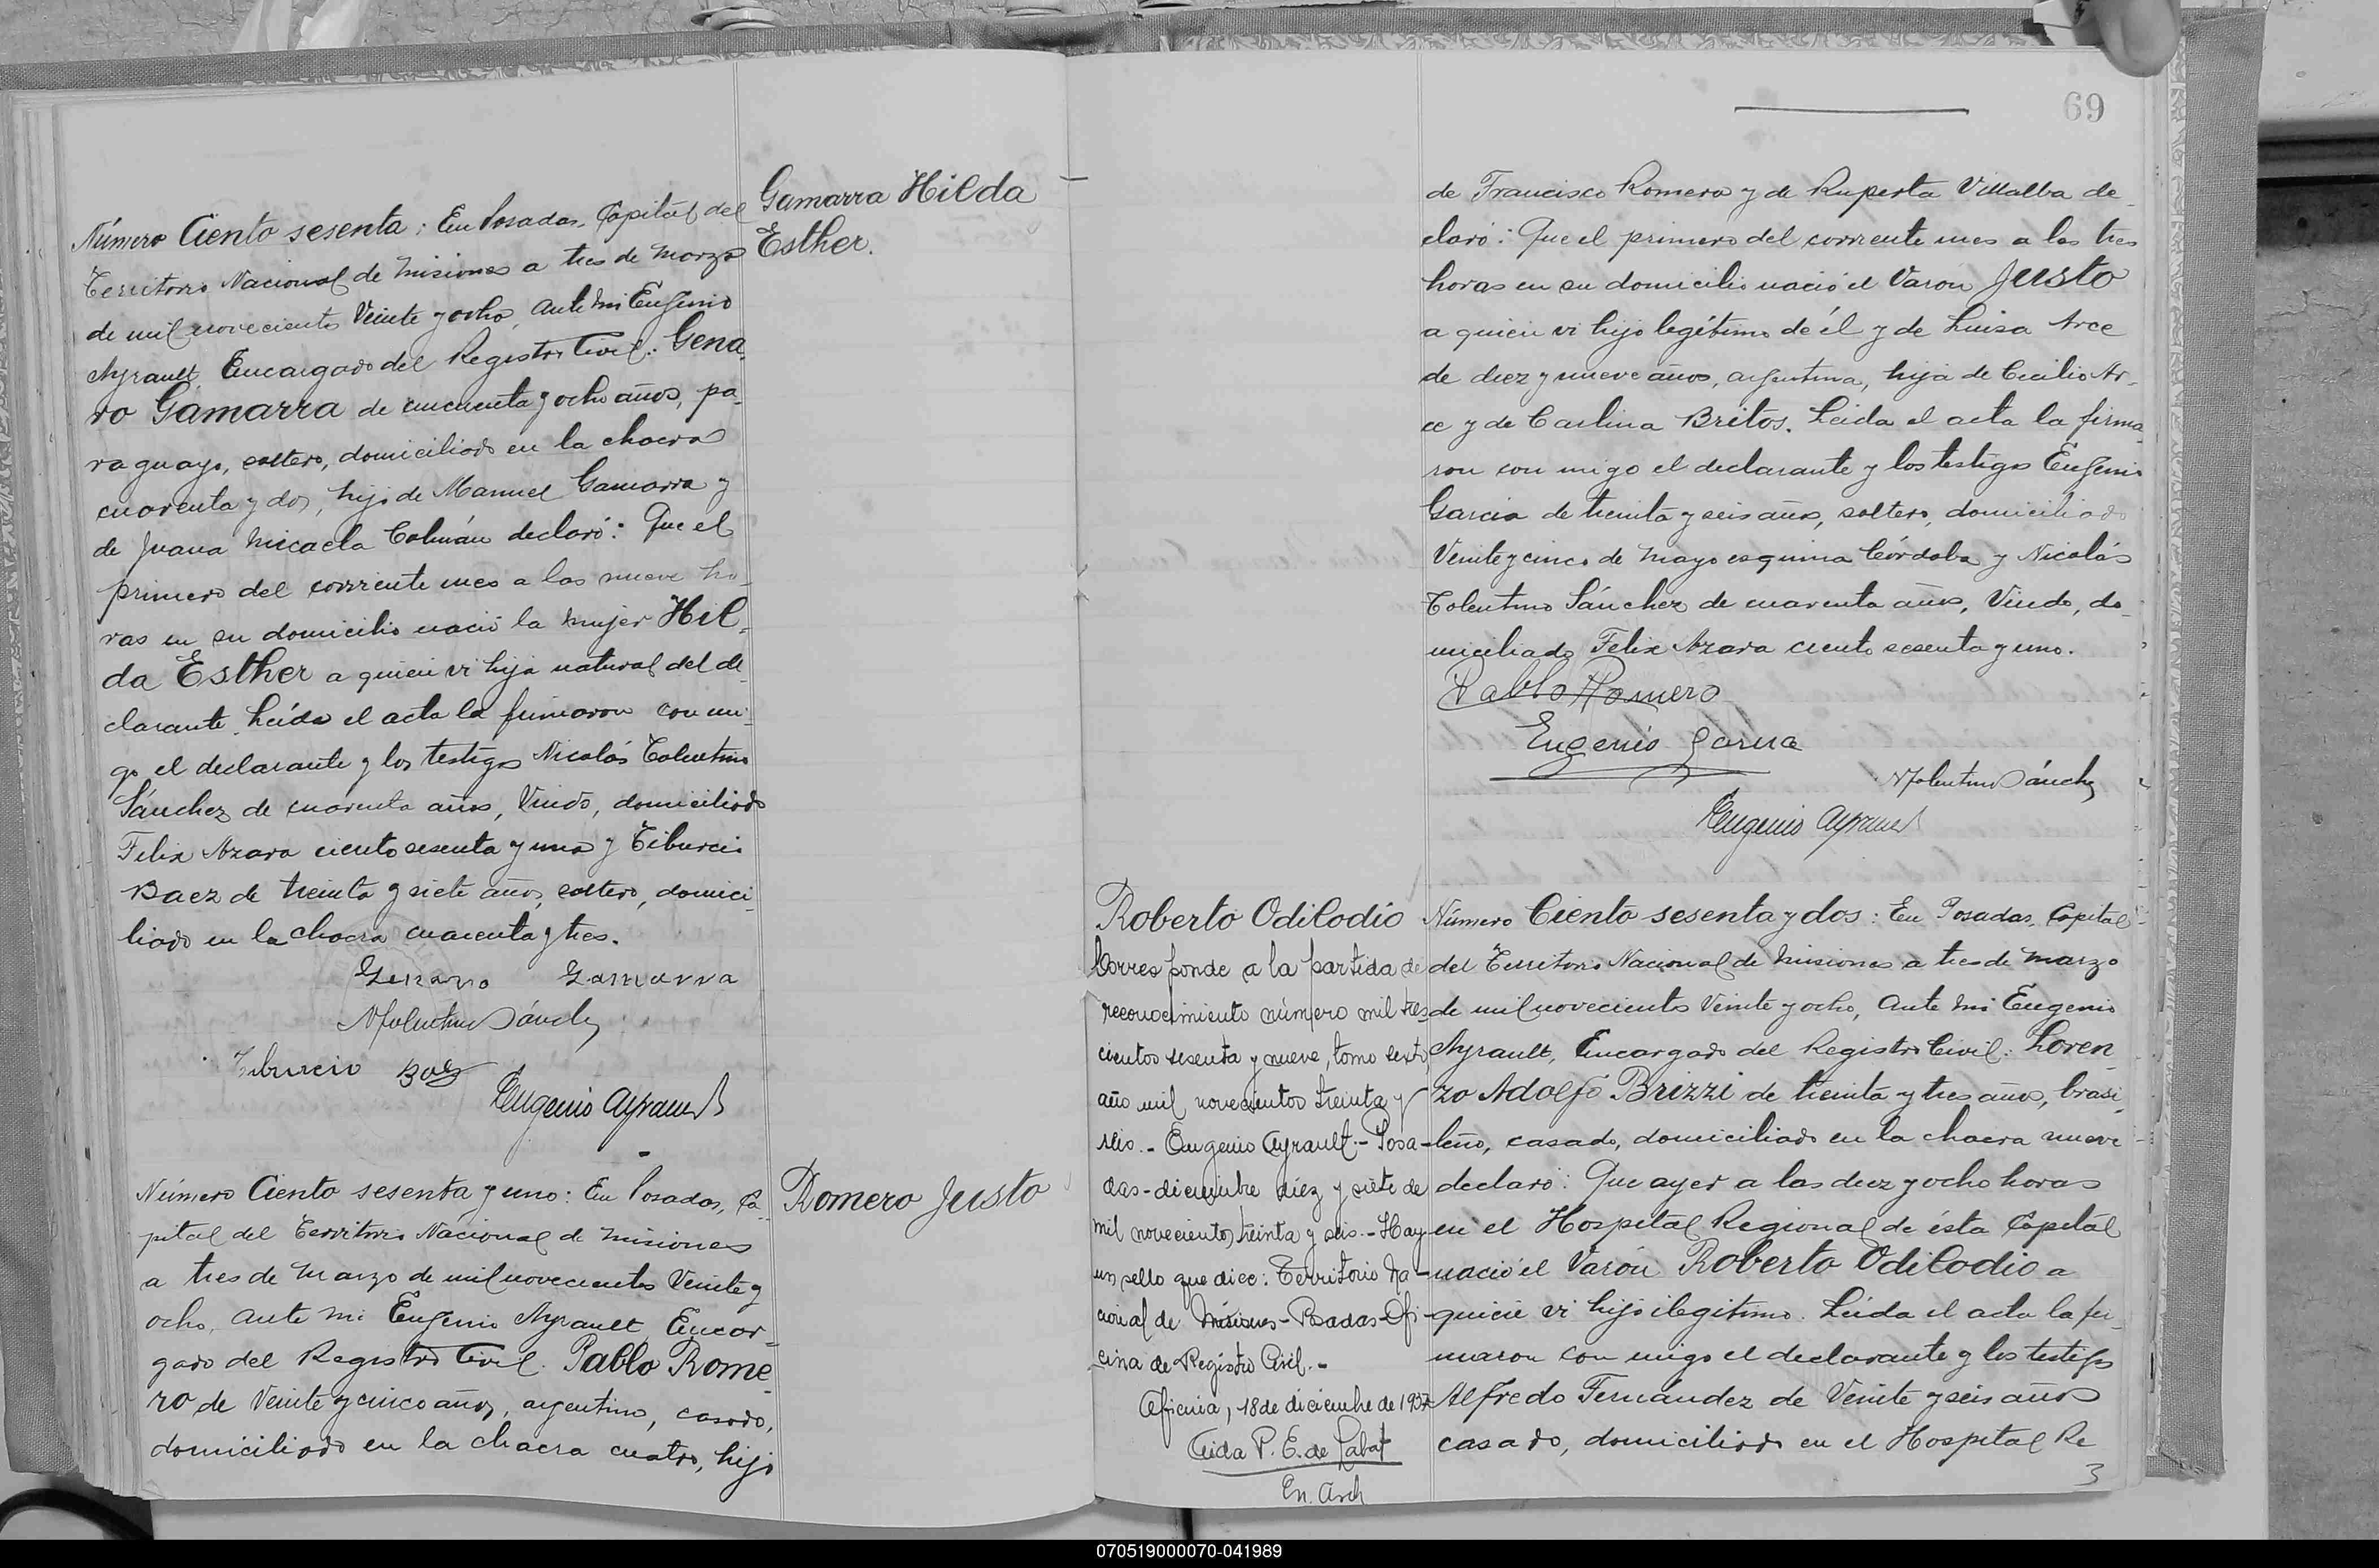 Gamarra Hilda
Esther.
Número Ciento sesenta: En Posadas, Capital del
Territorio Nacional de Misiones a tres de Marzo
de mil novecientos Veinte y ocho, ante mi Eugenio
Ayrault, Encargado del Registro Civil: Gena-
ro Gamarra de cincuenta y ocho años, pa-
raguayo, soltero, domiciliado en la chacra
cuarenta y dos, hijo de Manuel Gamarra y
de Juana Micaela Colmán declaró: Que el
primero del corriente mes a las nueve ho-
ras en su domicilio nació la mujer Hil-
da Esther a quien vi hija natural del de-
clarante. Leída el acta la firmaron con mi-
go el declarante y los testigos Nicolás Tolentino
Sánchez de cuarenta años, Viudo, domiciliado
Felix Azara ciento sesenta y uno y Tiburcio
Baez de treinta y siete años, soltero, domici-
liado en la chacra cuarenta y tres.
Genaro Gamarra
NTolentino Sánchez
Tiburcio Baez
Eugenio Ayrault
Romero Justo
Número Ciento sesenta y uno: En Posadas, Ca-
pital del Territorio Nacional de Misiones
a tres de Marzo de mil novecientos Veinte y
ocho, ante mi Eugenio Ayrault, Encar-
gado del Registro Civil: Pablo Rome-
ro de Veinte y cinco años, argentino, casado,
domiciliado en la chacra cuatro, hijo
69
de Francisco Romero y de Ruperta Villalba de-
claró: Que el primero del corriente mes a las tres
horas en su domicilio nació el Varón Justo
a quien vi hijo legítimo de él y de Luisa Arce
de diez y nueve años, argentina, hija de Cecilio Ar-
ce y de Carlina Britos. Leida el acta la firma-
ron con migo el declarante y los testigos Eugenio
Garcia de treinta y seis años, soltero, domiciliado
Veinte y cinco de Mayo esquina Córdoba y Nicolás
Tolentino Sánchez de cuarenta años, Viudo, do-
miciliado Felix Azara ciento sesenta y uno.
Pablo Romero
Eugenio Garcia
NTolentino Sánchez
Eugenio Ayrault
Roberto Odilodio
Corresponde a la partida de
reconocimiento número mil tres-
cientos sesenta y nueve, tomo sexto
año mil novecientos treinta y
seis.- Eugenio Ayrault.- Posa-
das- diciembre diez y siete de
mil novecientos treinta y seis.- Hay
un sello que dice: Territorio Na-
cional de Misiones- Posadas- Ofi-
cina de Registro Civil.-
Oficina, 18 de diciembre de 1937
Aida P. E. de Labat
En. Arch
Número Ciento sesenta y dos: En Posadas, Capital
del Territorio Nacional de Misiones a tres de Marzo
de mil novecientos Veinte y ocho, ante mi Eugenio
Ayrault, Encargado del Registro Civil: Loren-
zo Adolfo Brizzi de treinta y tres años, brasi-
leño, casado, domiciliado en la chacra nueve
declaró: Que ayer a las diez y ocho horas
en el Hospital Regional de ésta Capital
nació el Varón Roberto Odilodio a
quien vi hijo ilegitimo. Leida el acta la fir-
maron con migo el declarante y los testigos
Alfredo Fernández de Veinte y seis años
casado, domiciliado en el Hospital Re
3
070519000070-041989